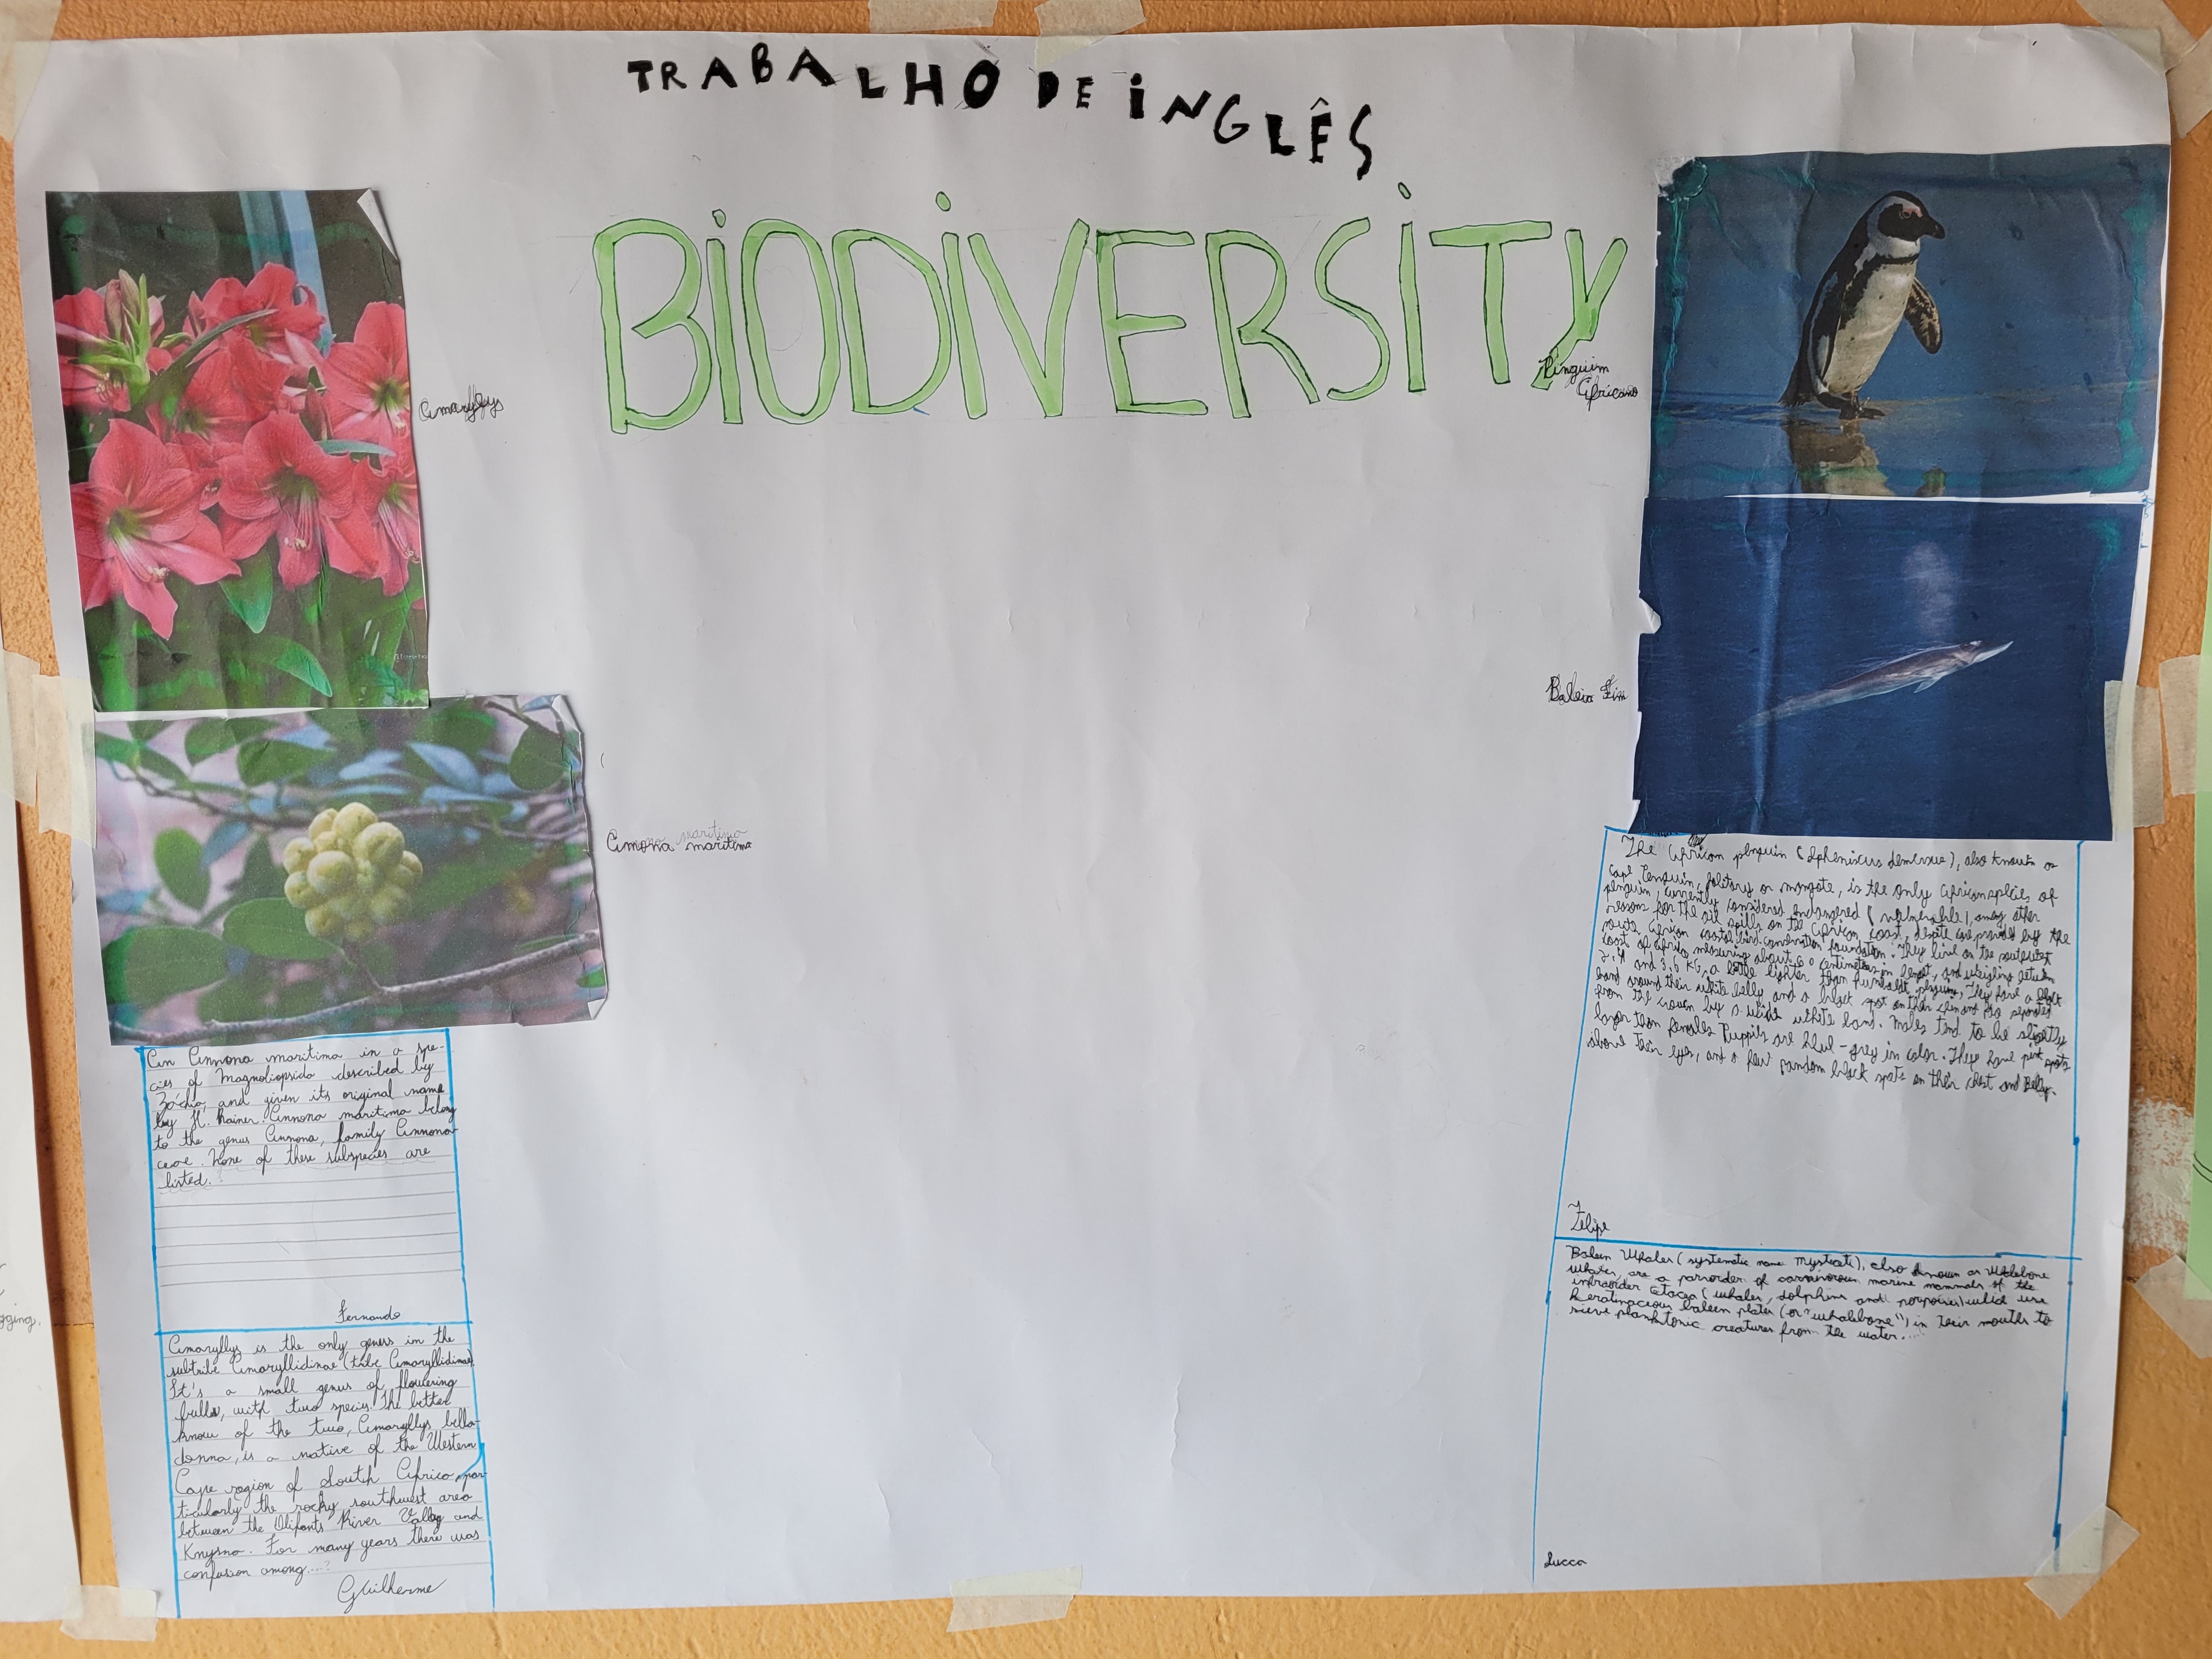 TRABALHO DE INGLÊS
BIODIVERSITY
Amaryllys
Pinguim
Africano
Baleia Fin
Annona maritima
maritima
An Annona maritima in a spe-
cies of Magnoliopsida described by
Zo'chio, and given its original name
by H. Rainer. Annona maritima belong
to the genus Annona, family Annona-
ceae. None of these subspecies are
listed.
Fernando
Amaryllys is the only genus in the
subtribe Amaryllidinae (tribe Amaryllidinae).
It's a small genus of flowering
bulbs, with two species. The better
know of the two, Amaryllys bella-
donna, is a native of the Western
Cape region of South Africa, par-
ticularly the rocky southwest area
between the Olifants River Valley and
Knysna. For many years there was
confusion among...?
Guilherme
The African penguin (Spheniscus demersus), also known as
Cape Penguin, solitary or mangote, is the only African species of
penguin, currently considered endangered (vulnerable), among other
reasons for the oil spills on the African coast, despite care provided by the
African coastal bird conservation foundation. They live on the
coast of Africa measuring about 60 centimeters in lenght, and weighing between
2,4 and 3,6 KG, a little lighter than humboldt penguins, They have a black
band around their white belly and a black spot on their chin and face separated
from the crown by a wide white band. Males tend to be slightly
larger than females Puppies are blue-grey in color. They have pink spots
above their eyes, and a few random black spots on their chest and Belly.
Felipe
Baleen Whales (systematic name mysticeti), also known as Whalebone
whales, are a parvorder of carnivorous marine mammals of the
infraorder Cetacea (whales, dolphins and porpoises) which use
Keratinaceous baleen plates (or "whalebone") in their mouths to
sieve planktonic creatures from the water....
Lucca